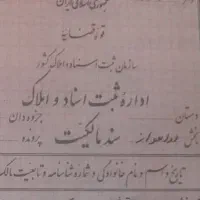 جمهوری اسلامی ایران
قوه قضائیه
سازمان ثبت اسناد و املاک کشور
اداره ثبت اسناد و املاک
دبستان جزوه‌دان
بخش سند مالکیت پرونده
تاریخ و اسم و نام خانوادگی و شماره شناسنامه و تابعیت مالک